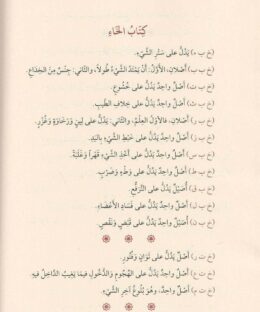 كِتَابُ الخَاءِ
(خ ب ء) يَدُلُّ على سَتْرِ الشَّيْءِ.
(خ ب ب) أَصْلَانِ، الأَوَّلُ: أَنْ يَمْتَدَّ الشَّيْءُ طُولاً، والثَّانِي: جِنْسٌ مِنَ الخِدَاعِ.
(خ ب ت) أَصْلٌ واحِدٌ يَدُلُّ على خُشُوعٍ.
(خ ب ث) أَصْلٌ واحِدٌ يَدُلُّ على خِلَافِ الطَّيِّبِ.
(خ ب ر) أَصْلَانِ: فالأَوَّلُ العِلْمُ، والثَّانِي: يَدُلُّ على لِينٍ وَرَخَاوَةٍ وَغُزْرٍ.
(خ ب ز) أَصْلٌ واحِدٌ يَدُلُّ على خَبْطِ الشَّيْءِ بِاليَدِ.
(خ ب س) أَصْلٌ واحِدٌ يَدُلُّ على أَخْذِ الشَّيْءِ قَهْراً وَغَلَبَةً.
(خ ب ط) أَصْلٌ واحِدٌ يَدُلُّ على وَطْءٍ وَضَرْبٍ.
(خ ب ق) أُصَيْلٌ يَدُلُّ على التَّرَفُّعِ.
(خ ب ل) أَصْلٌ واحِدٌ يَدُلُّ على فَسَادِ الأَعْضَاءِ.
(خ ب ن) أُصَيْلٌ واحِدٌ يَدُلُّ على قَبْضٍ وَنَقْصٍ.
(خ ت ر) أَصْلٌ يَدُلُّ على تَوَانٍ وَفُتُورٍ.
(خ ت ع) أَصْلٌ واحِدٌ يَدُلُّ على الهُجُومِ والدُّخُولِ فيما يَغِيبُ الدَّاخِلُ فيهِ.
(خ ت م) أَصْلٌ واحِدٌ، وهُوَ بُلُوغُ آخِرِ الشَّيْءِ.